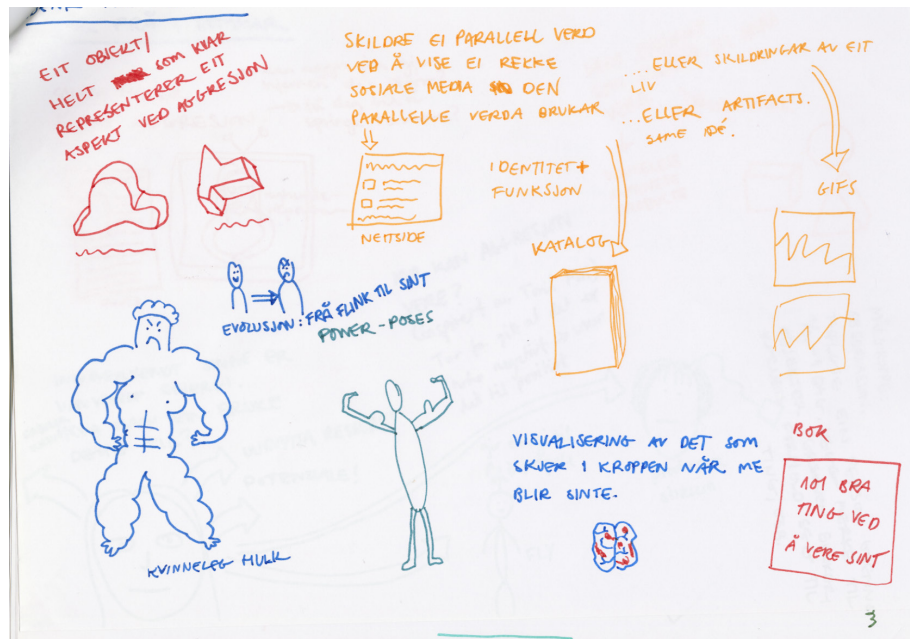 EIT OBJEKT/
HELT SOM KVAR
REPRESENTERER EIT
ASPEKT VED AGGRESJON
SKILDRE EI PARALLELL VERD
VED Å VISE EI REKKE
SOSIALE MEDIA DEN
PARALLELLE VERDA BRUKAR
NETTSIDE
IDENTITET+
FUNKSJON
...ELLER SKILDRINGAR AV EIT
LIV
...ELLER ARTIFACTS.
SAME IDÉ.
KATALOG
GIFS
EVOLUSJON: FRÅ FLINK TIL SINT
POWER-POSES
KVINNELEG HULK
VISUALISERING AV DET SOM
SKJER I KROPPEN NÅR ME
BLIR SINTE.
BOK
101 BRA
TING VED
Å VERE SINT
3